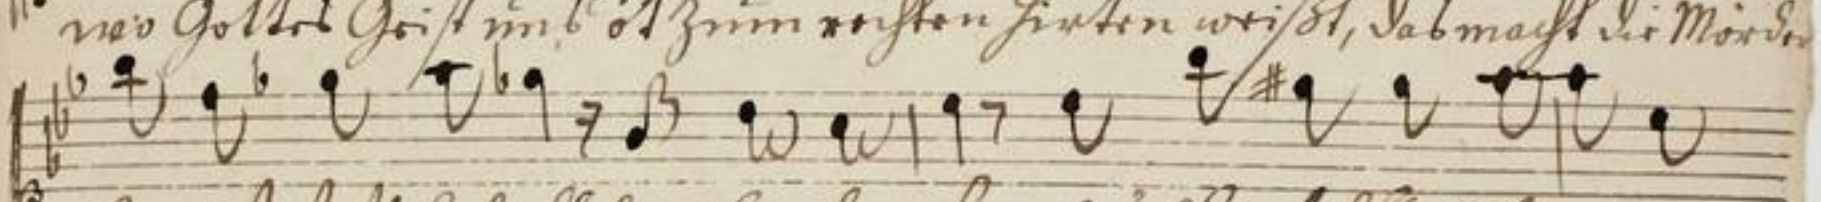 wo Gottes Geist uns ot zum rechten Hirten weißt, das macht die Mörder